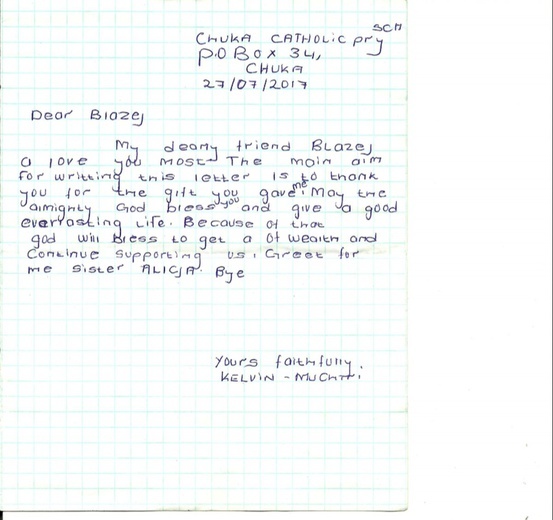 CHUKA CATHOLIC pry SCH
P.O BOX 34,
CHUKA
27/07/2017
Dear Blazej
My dearly friend BLAZEJ
a love you most The main aim
for writting this letter is to thank
you for the gift you gave me. May the
almighty God bless you and give you a good
everlasting Life. Because of that
god will bless to get a of wealth and
Continue supporting us. Greet for
me sister ALICJA. Bye
Yours faithfully
KELVIN -